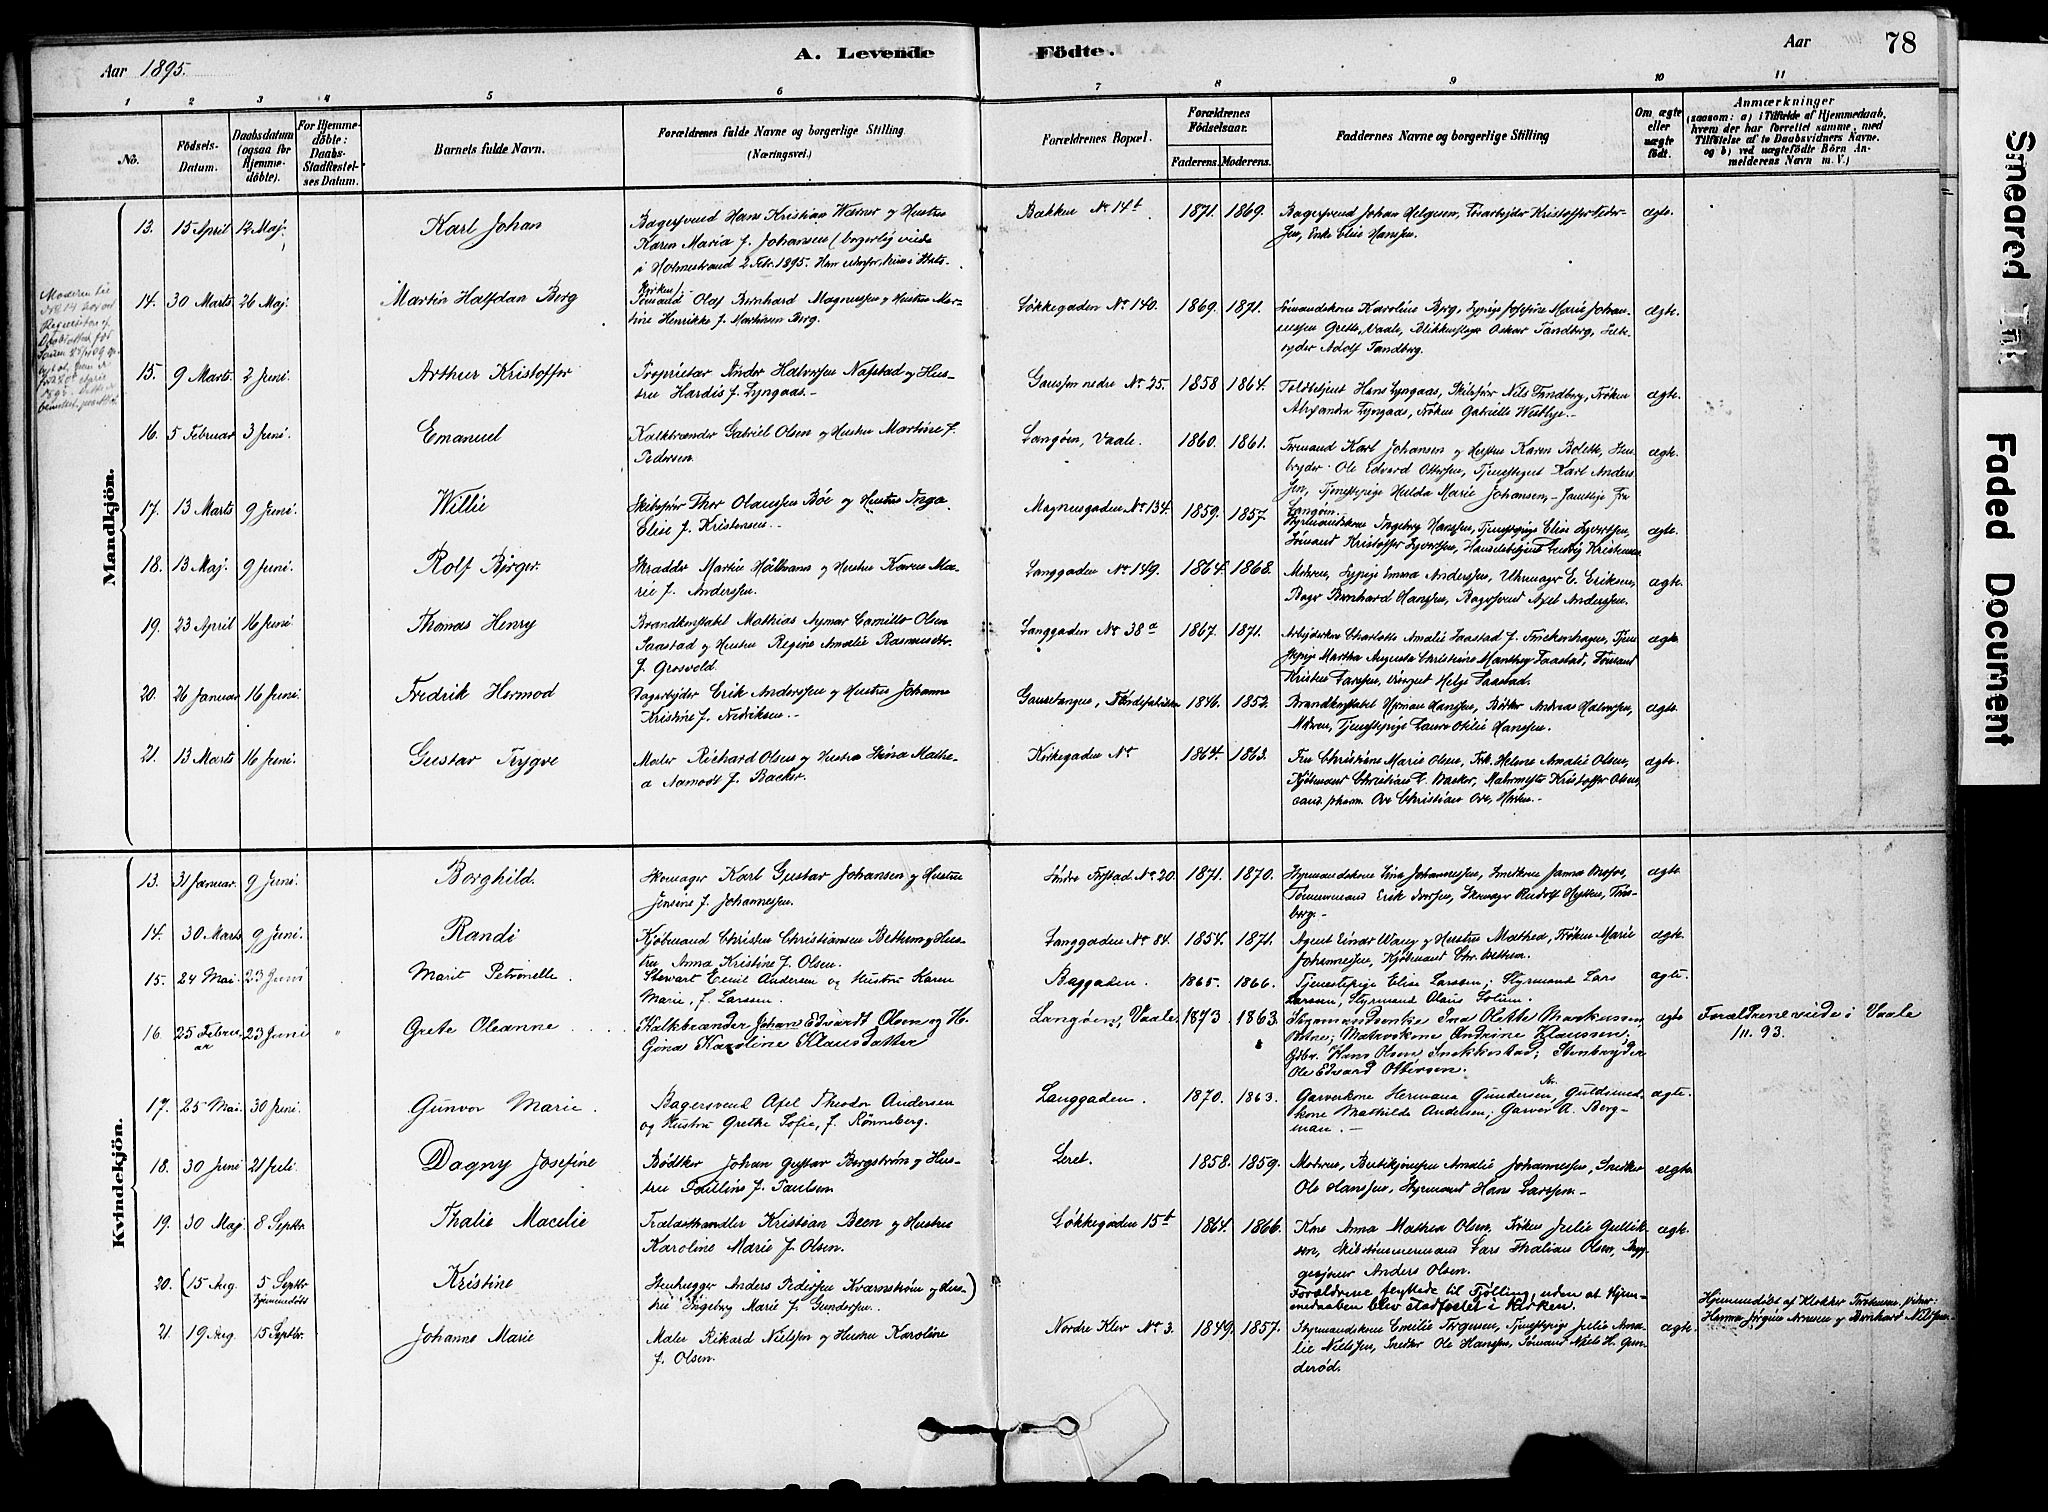 Aar 1895.
A. Levende Födte.
Aar
78
1 2 3 4 5 6 7 8 9 10 11
No.
Födsels-Datum.
Daabsdatum (ogsaa for Hjemme-döbte).
For Hjemme-döbte: Daabs-Stadfæstel-ses Datum.
Barnets fulde Navn.
Forældrenes fulde Navne og borgerlige Stilling
(Næringsvei.)
Forældrenes Bopæl.
Forældrenes Födselsaar.
Faderens. Moderens.
Faddernes Navne og borgerlige Stilling
Om ægte eller uægte födt.
Anmærkninger
(saasom: a) i Tilfælde af Hjemmedaab,
hvem der har forrettet samme, med
Tilföielse af to Daabsvidners Navne.
og b) ved uægtefödte Börn An-
melderens Navn m. V.)
Mandkjön.
13. 15 April 12 Maj. Karl Johan
Bagersvend Hans Kristian Werner og Hustru
Karen Maria f. Johansen (borgerlig viede
i Holmestrand 2 Febr. 1895.
Bakken No 14b 1871. 1869.
Bagersvend Johan Helgesen, Kristoffer Peder-
sen, Enke Elise Hanssen. ægte.
14. 30 Marts 26 Maj. Martin Halfdan Berg
Sømand Olaf Bernhard Magnussen og Hustru Mar-
tine Henrikke f. Martinsen Berg.
Løkkegaden No 140. 1869. 1871.
Sømandskone Karoline Berg, Josefine Marie Johan-
nessen Grette, Vaale, Blikkenslager Oskar Tandberg,
Adolf Tandberg. ægte.
15. 9 Marts 2 Juni. Arthur Kristoffer
Proprietær Andor Halvorsen Nafstad og Hus-
tru Hardis f. Lyngaas.
Gausen nedre No 25. 1858 1864.
Toldbetjent Hans Lyngaas, Skibsfør Nils Tandberg, Frøken
Alexandra Lyngaas, Frøken Gabrielle Westbye. ægte.
16. 5 Februar 3 Juni. Emanuel
Kalkbrænder Gabriel Olsen og Hustru Martine f.
Pedersen.
Langøen, Vaale. 1860. 1861.
Formand Karl Johansen og Hustru Karen Bolette, Sten-
bryder Ole Edvard Ottersen, Tjenestegut Karl Anders
sen, Tjenestepige Hulda Marie Johansen, Samtlige fra
Langøen. ægte.
17. 13 Marts 9 Juni. Willie
Skibsfør Thor Olaussen Bøe og Hustru Inga
Elise f. Kristensen.
Magnusgaden No 134. 1859. 1857.
Styrmandskone Ingeborg Hanssen, Tjenestepige Elise Syvertsen,
Sømand Kristoffer Syvertsen, Handelsbetjent Ludvig Kristensen. ægte.
18. 13 Maj. 9 Juni. Rolf Birger.
Skrædder Martin Hålmann og Hustru Karen Ma-
rie f. Anderssen.
Langgaden No 149. 1864. 1868.
Moderen, Emma Anderssen, Uhrmager E. Eriksen,
Bager Bernhard Hanssen, Bagersvend Axel Anderssen. ægte.
19. 23 April 16 Juni. Thomas Henry
Brandkonstabel Mathias Aymar Camillo Olsen
Saastad og Hustru Regine Amalie Rasmusdtr.
f. Grosveld.
Langgaden No 38a 1867. 1871.
Charlotte Amalie Saastad f. Frickenhagen, Tjene
stepige Martha Augusta Christine Manthey Saastad, Sømand
Kristen Larssen, Helge Saastad. ægte.
20. 26 Januar 16 Juni. Fredrik Hermod
Dagarbejder Erik Anderssen og Hustru Johanne
Kristine f. Fredriksen.
Gausetangen, 1846. 1852.
Brandkonstabel Herman Hanssen, Bødker Andreas Halvorsen,
Moderen, Tjenestepige Laura Otilie Hanssen. ægte.
21. 13 Marts 16 Juni. Gustav Trygve
Maler Richard Olsen og Hustru Stina Mathe-
a Aamodt f. Backer.
Kirkegaden No 1864. 1863.
Fru Christiane Marie Olsen, Frk. Helene Amalie Olsen,
Kjøbmand Christian E. Backer, Malermester Kristoffer Olsen,
cand. pharm. Ove Christian Ove, Horten. ægte.
Kvindekjön.
13. 31 Januar. 9 Juni. Borghild.
Skomager Karl Gustav Johansen og Hustru
Jensine f. Johannessen.
Søndre Fristad No 20. 1871. 1870.
Styrmandskone Lina Johannessen, Janna
Tømmermand Erik Iversen, Skomager Rudolf Hytten, Tøns-
berg. ægte.
14. 30 Marts 9 Juni. Randi
Kjøbmand Christen Christiansen Bettum og Hus-
tru Anna Kristine f. Olsen.
Langgaden No 84. 1854. 1871.
Agent Einar Wang og Hustru Mathea, Frøken Marie
Johannessen, Kjøbmand Chr. Bettum. ægte.
15. 24 Mai. 23 Juni Marit Petronelle.
Stewart Emil Andersen og Hustru Karen
Marie, f. Larssen.
Baggaden. 1865. 1866.
Tjenestepige Elise Larssen; Styrmand Lars
Larssen, Styrmand Olaus Solum. ægte.
16. 25 Febru-ar 23 Juni " Grete Oleanne
Kalkbrænder Johan Edvardt Olsen og H.
Gina Karoline Klausdatter
Langøen, Vaale 1873 1863.
Styrmandsenke Ina Olette Markussen,
Matroskone Andrine Klaussen;
Gdbr. Hans Olsen Snekkestad; Stenbryder
Ole Edvard Ottersen. ægte
Forældrene viede i Vaale
/11. 93.
17. 25 Mai. 30 Juni. Gunvor Marie.
Bagersvend Axel Theodor Andersen
og Hustru Grethe Sofie, f. Rønneberg.
Langgaden. 1870. 1863.
Garverkone Hermana Gundersen, Guldsmed-
kone Mathilde Andersen; Garver A. Berg-
man. ægte.
18. 30 Juni 21 Juli. Dagny Josefine
Bødker Johan Gustav Bergstrøm og Hus-
tru Pauline f. Paulsen
Leret. 1858. 1859.
Moderen, Amalie Johannessen, Snedker
Ole Hanssen, Styrmand Hans Larssen. ægte
19. 30 Maj 8 Septbr. Thalie Macelie
Trælasthandler Kristian Been og Hustru
Karoline Marie f. Olsen.
Løkkegaden 15b 1864. 1866.
Kone Anna Mathea Olsen, Frøken Julie Gullik-
sen, Skibstømmermand Lars Thalian Olsen, Bryg-
gesjouer Anders Olsen. ægte.
20. (15 Aug. 5 Septbr Hjemmedøbt Kristine
Stenhugger Anders Pedersen Kvarnstrøm og Hus-)
tru Ingeborg Marie f. Gundersen.
Forældrene flyttede til Tjølling, uden at Hjem-
medaaben blev stadfæstet i Kirken.
Hjemmedøbt af Klokker
Jørgen Arnesen og Bernhard Nilssen
21. 19 Aug. 15 Septbr. Johanne Marie
Maler Rikard Nielsen og Hustru Karoline
f. Olsen.
Nordre Klev No 3. 1849. 1857.
Styrmandskone Emilie Torgersen, Tjenestepige Julie Ama-
lie Nielsen, Snedker Ole Hanssen, Sømand Niels H. Gun-
derød. ægte.
Smeared Ink
Faded Document